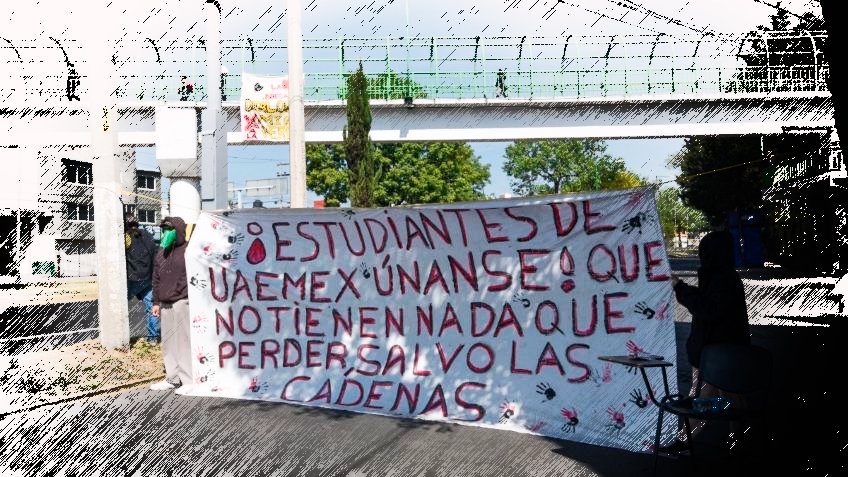 ¡ESTUDIANTES DE
UAEMEX ÚNANSE! QUE
NO TIENEN NADA QUE
PERDER, SALVO LAS
CADENAS